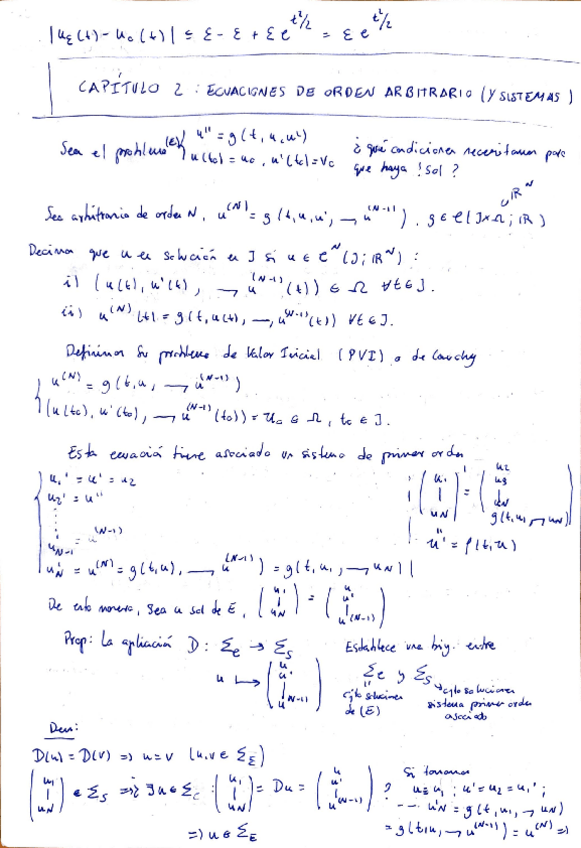 |u_ε(t) - u_0(t)| ≤ ε - ε + ε e^{t²/2} = ε e^{t²/2}
CAPÍTULO 2 : ECUACIONES DE ORDEN ARBITRARIO (Y SISTEMAS)
Sea el problema (E) { u'' = g(t, u, u')
u(t_0) = u_0, u'(t_0) = v_0 ¿qué condiciones necesitamos para que haya ! sol ?
Sea arbitraria de orden N, u^{(N)} = g(t, u, u', → u^{(N-1)}), g ∈ C(J×Ω; ℝ) ⊂ ℝ^N
Decimos que u es solución en J si u ∈ C^N(J; ℝ^N) :
i) (u(t), u'(t), → u^{(N-1)}(t)) ∈ Ω ∀t ∈ J.
ii) u^{(N)}(t) = g(t, u(t), —, u^{(N-1)}(t)) ∀t ∈ J.
Definimos su problema de Valor Inicial (PVI) o de Cauchy
{ u^{(N)} = g(t, u, → u^{(N-1)})
(u(t_0), u'(t_0), → u^{(N-1)}(t_0)) = U_0 ∈ Ω, t_0 ∈ J.
Esta ecuación tiene asociado un sistema de primer orden
{ u_1' = u' = u_2
u_2' = u''
⋮
u_{N-1}' = u^{(N-1)}
u_N' = u^{(N)} = g(t, u), → u^{(N-1)}) = g(t, u_1, → u_N)
(u_1 | u_N)' = (u_2 u_3 | u_N g(t, u_1, → u_N))
u' = f(t, u)
De esta manera, sea u sol de E, (u_1 | u_N) = (u u' | u^{(N-1)})
Prop: La aplicación D : Σ_e → Σ_s Establece una biy. entre
u ↦ (u u' | u^{(N-1)}) Σ_e y Σ_s
cjto soluciones de (E) cjto soluciones sistema primer orden asociado
Dem:
D(u) = D(v) ⇒ u = v (u, v ∈ Σ_E)
(u_1 | u_N) ∈ Σ_s ⇒ ¿ ∃u ∈ Σ_E : (u_1 | u_N) = Du = (u u' | u^{(N-1)}) ?
Si tomamos
u ≡ u_1 ; u' = u_2 = u_1' ;
--- u_N' = g(t, u_1, → u_N)
= g(t, u, → u^{(N-1)}) = u^{(N)} ⇒
⇒ u ∈ Σ_E